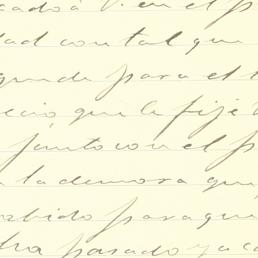 cado á V. en el p
dad con tal que
gunda para el
ecio que le fijé
junto con el p
a la demora que
rabido para que
ha pasado ya ca